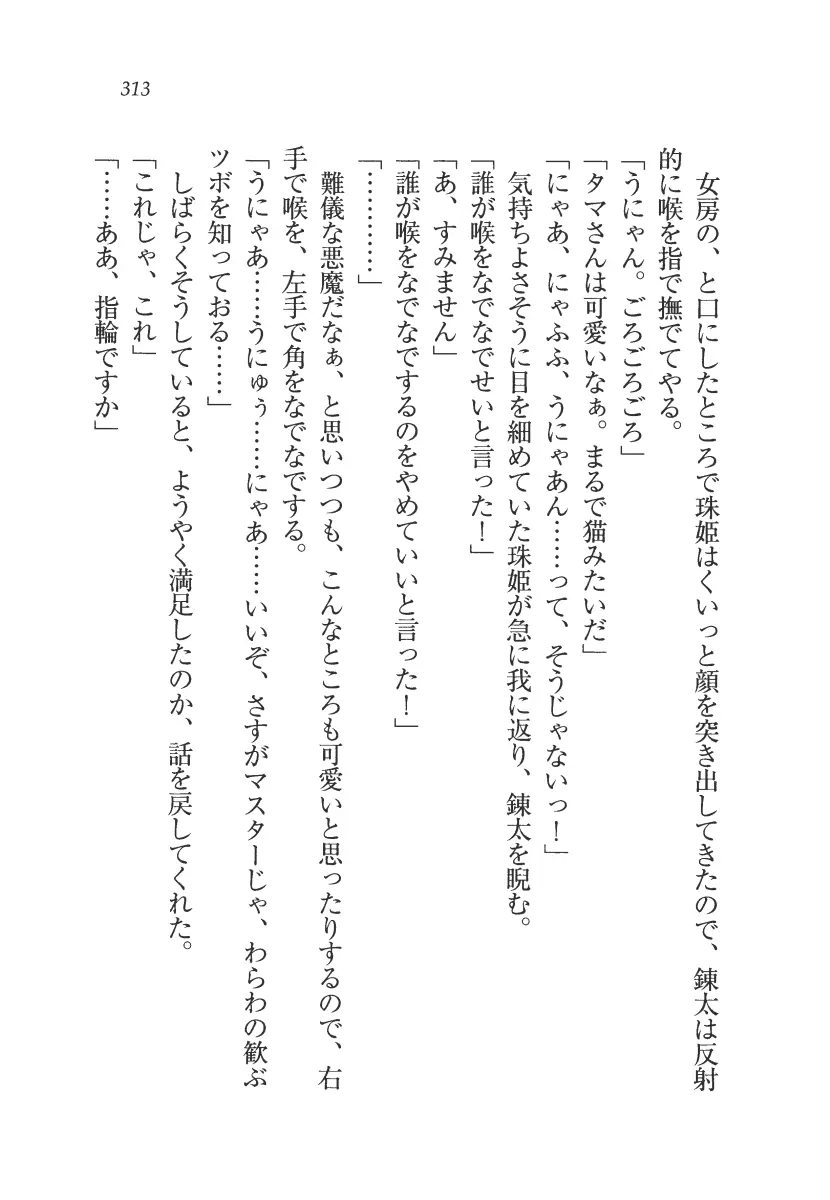 313
女房の、と口にしたところで珠姫はくいっと顔を突き出してきたので、錬太は反射
的に喉を指で撫でてやる。
「うにゃん。ごろごろごろ」
「タマさんは可愛いなぁ。まるで猫みたいだ」
「にゃあ、にゃふふ、うにゃあん……って、そうじゃないっ！」
気持ちよさそうに目を細めていた珠姫が急に我に返り、錬太を睨む。
「誰が喉をなでなでせいと言った！」
「あ、すみません」
「誰が喉をなでなでするのをやめていいと言った！」
「…………」
難儀な悪魔だなぁ、と思いつつも、こんなところも可愛いと思ったりするので、右
手で喉を、左手で角をなでなでする。
「うにゃあ……うにゅぅ……にゃあ……いいぞ、さすがマスターじゃ、わらわの歓ぶ
ツボを知っておる……」
しばらくそうしていると、ようやく満足したのか、話を戻してくれた。
「これじゃ、これ」
「……ああ、指輪ですか」